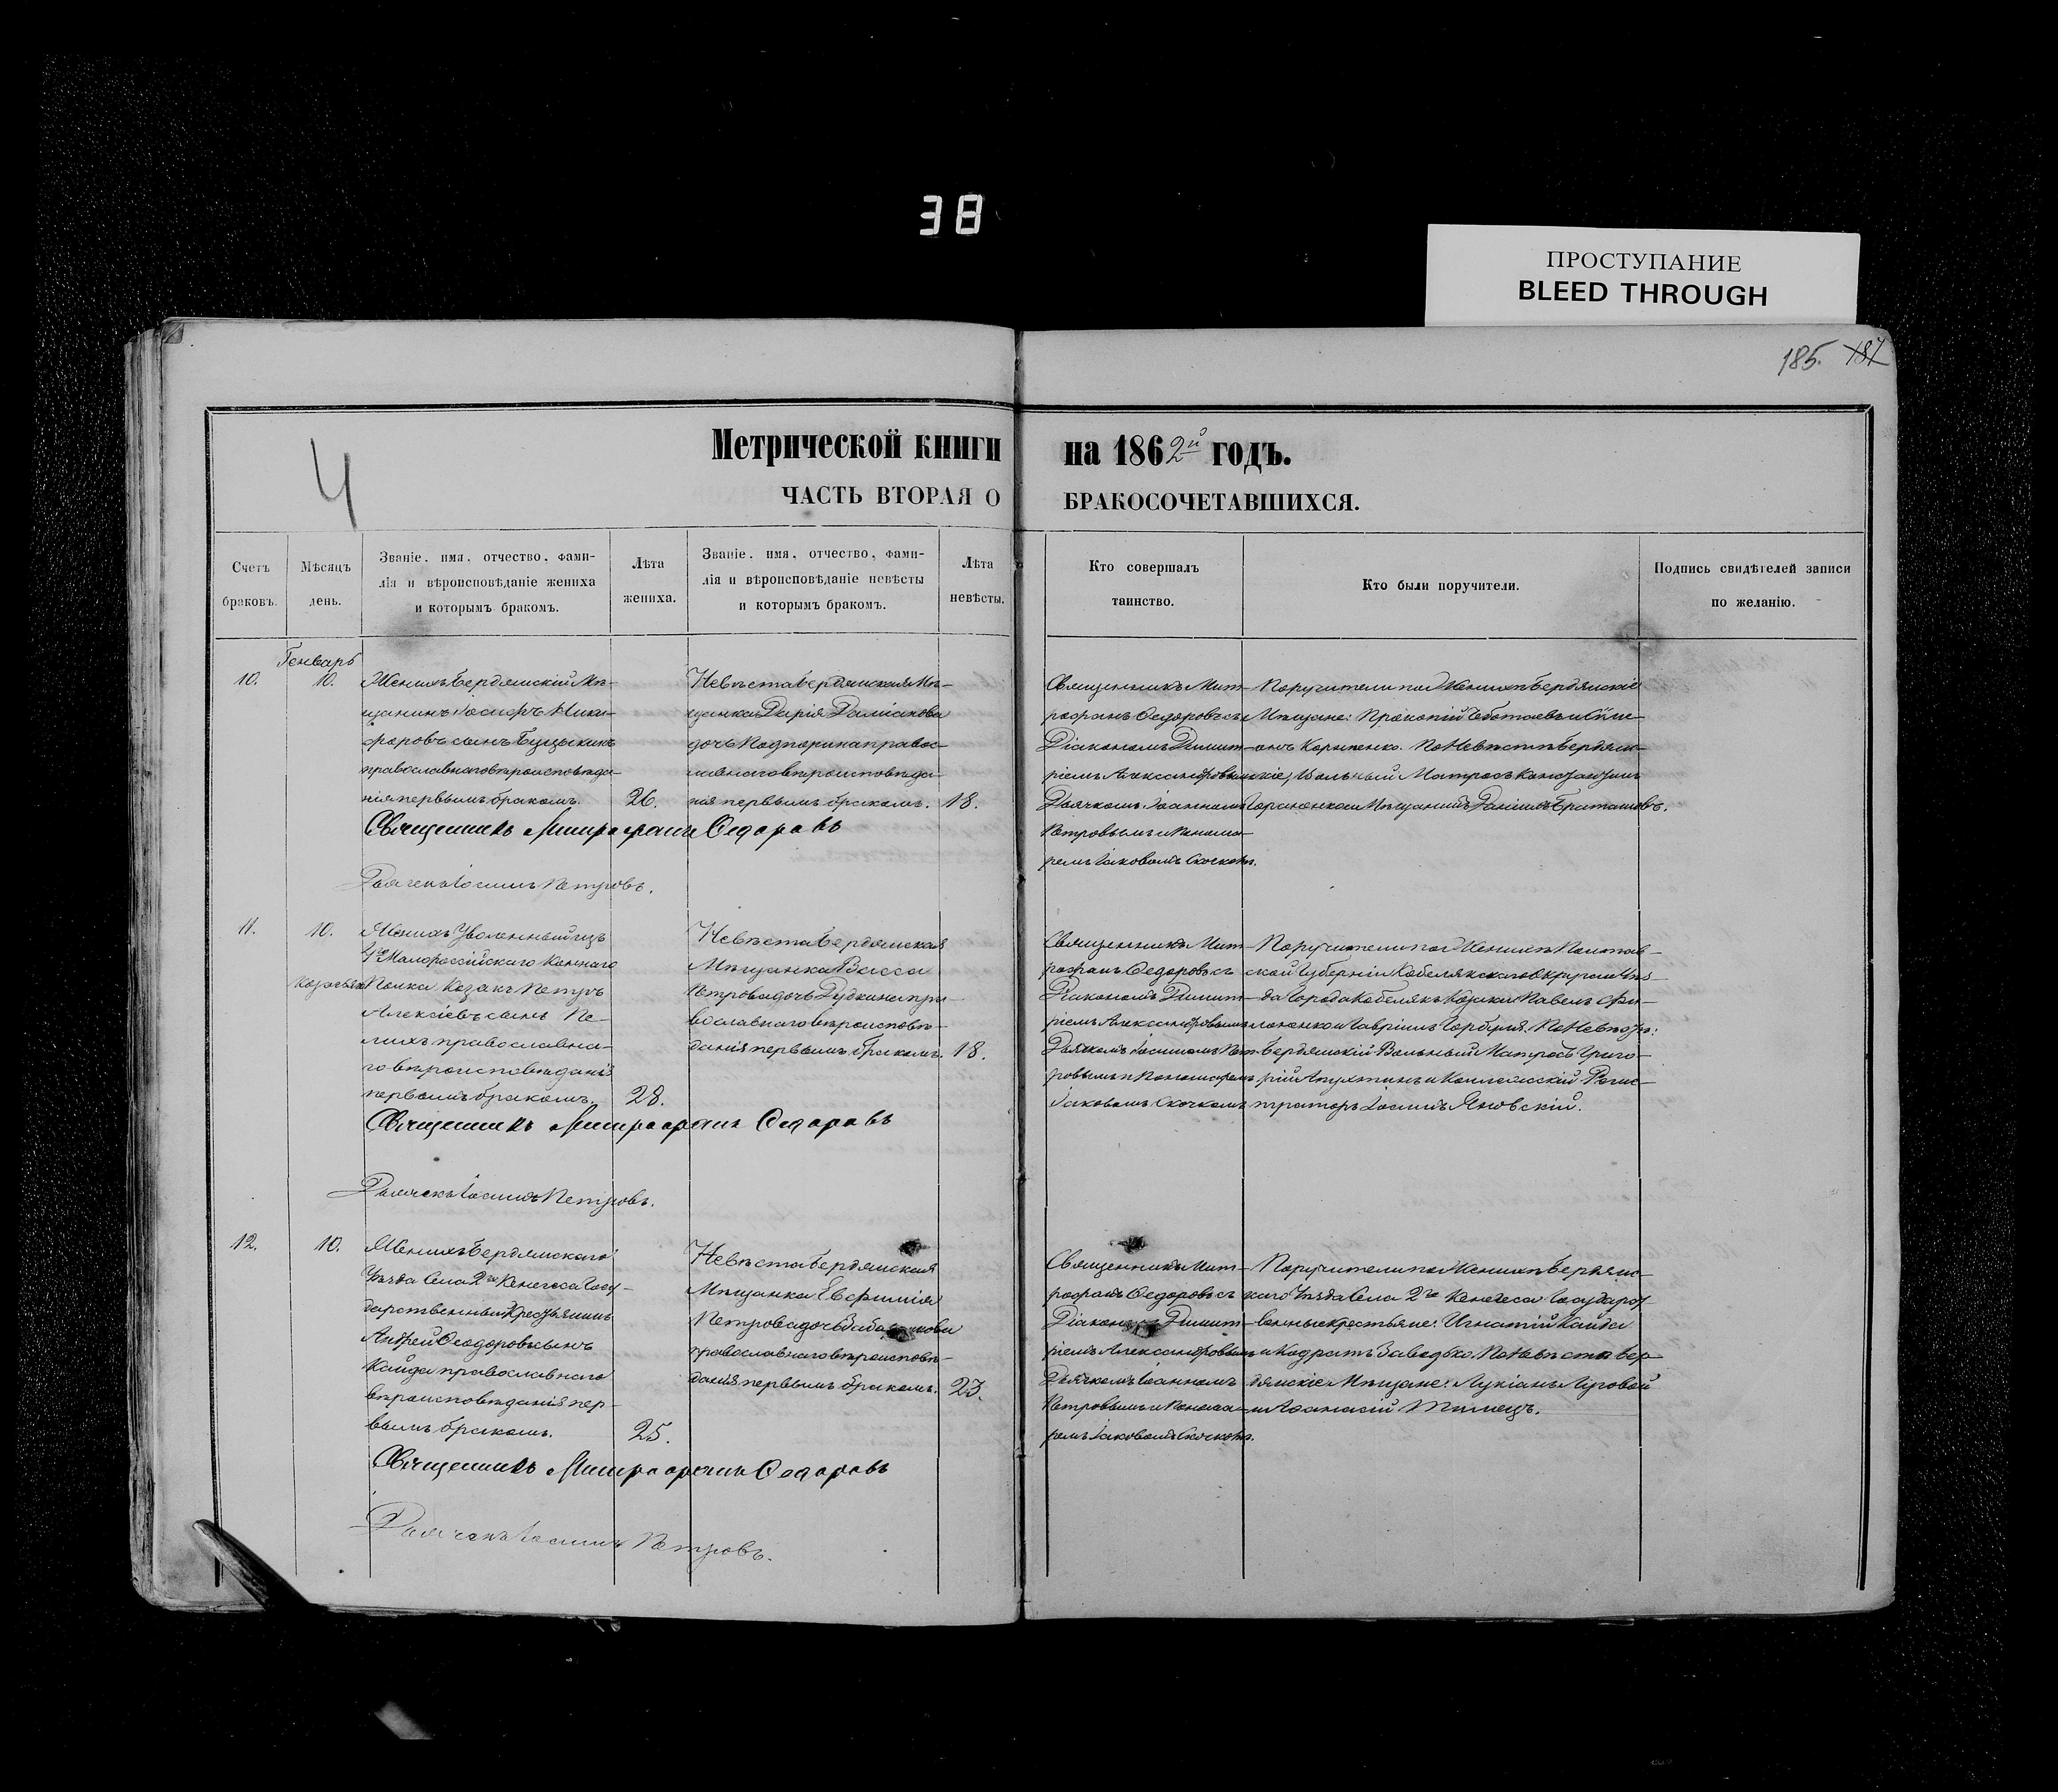 38
ПРОСТУПАНИЕ
BLEED THROUGH
185. 187
4
Метрической книги на 1862й годъ.
ЧАСТЬ ВТОРАЯ О БРАКОСОЧЕТАВШИХСЯ.
Счетъ браковъ.
Мѣсяцъ день.
Званіе, имя, отчество, фами-
лія и вѣроисповѣданіе жениха
и которымъ бракомъ.
Лѣта жениха.
Званіе, имя, отчество, фами-
лія и вѣроисповѣданіе невѣсты
и которымъ бракомъ.
Лѣта невѣсты.
Кто совершалъ
таинство.
Кто были поручители.
Подпись свидѣтелей записи
по желанію.
Генварь
10. 10.
Женихъ Бердянскій Мѣ-
щанинъ Іосифъ Ники-
форовъ сынъ
православнаго вѣроисповѣда-
нія первымъ бракомъ. 26.
Невѣста Бердянская Мѣ-
щанка Дарія Даміанова
дочь Подпорина правос-
лавнаго вѣроисповѣда-
нія первымъ бракомъ. 18.
Священникъ Мит-
рофанъ Ѳедоровъ съ
Діакономъ Димит-
ріемъ Александровымъ
Дьячкомъ Іоанномъ
Петровымъ и Понома-
ремъ Іаковомъ Скочкомъ.
Поручители по Женихѣ Бердянскіе
Мѣщане: Прокопій и
Корниенко. По Невѣстѣ Бердян-
скіе, Вольный Матросъ
и Мѣщанинъ Даніилъ
Священникъ Митрофанъ Ѳедоровъ
Дьячекъ Іоаннъ Петровъ.
11. 10.
Женихъ Уволенный изъ
Малороссійскаго Коннаго
Козачьяго Полка Козакъ Петръ
Алексіевъ сынъ Пе-
лихъ православна-
го вѣроисповѣданія
первымъ бракомъ. 28.
Невѣста Бердянская
Мѣщанка Васса
Петрова дочь Дудкина пра-
вославнаго вѣроисповѣ-
данія первымъ бракомъ. 18.
Священникъ Мит-
рофанъ Ѳедоровъ съ
Діакономъ Димит-
ріемъ Александровымъ
Дьячкомъ Іоанномъ Пет-
ровымъ и Пономаремъ
Іаковомъ Скочкомъ
Поручители по Женихѣ Полтав-
ской Губерніи Кобелякскаго
Города Кобелякъ Козаки Павелъ Фи-
лоненко и Гавріилъ По Невѣстѣ:
Бердянскій Вольный Матросъ Григо-
рій Апухтинъ и Коллежскій Регис-
траторъ Іоаннъ Яновскій.
Священникъ Митрофанъ Ѳедоровъ
Дьячекъ Іоаннъ Петровъ.
12. 10.
Женихъ Бердянскаго
Уѣзда Села 2го Кенегеса Госу-
дарственный Крестьянинъ
Андрей Ѳеодоровъ сынъ
Кайда православнаго
вѣроисповѣданія пер-
вымъ бракомъ. 25.
Невѣста Бердянская
Мѣщанка Евфимія
Петрова дочь
православнаго вѣроисповѣ-
данія первымъ бракомъ. 23.
Священникъ Мит-
рофанъ Ѳедоровъ съ
Діакономъ Димит-
ріемъ Александровымъ
Дьячкомъ Іоанномъ
Петровымъ и Понома-
ремъ Іаковомъ Скочкомъ.
Поручители по Женихѣ Бердянс-
каго Уѣзда Села 2го Кенегеса Государст-
венные крестьяне: Игнатій Кайда
и Кодратъ Заводько. По Невѣстѣ Бер-
дянскіе Мѣщане: Лукіанъ Луговой
и Аѳанасій
Священникъ Митрофанъ Ѳедоровъ
Дьячекъ Іоаннъ Петровъ.